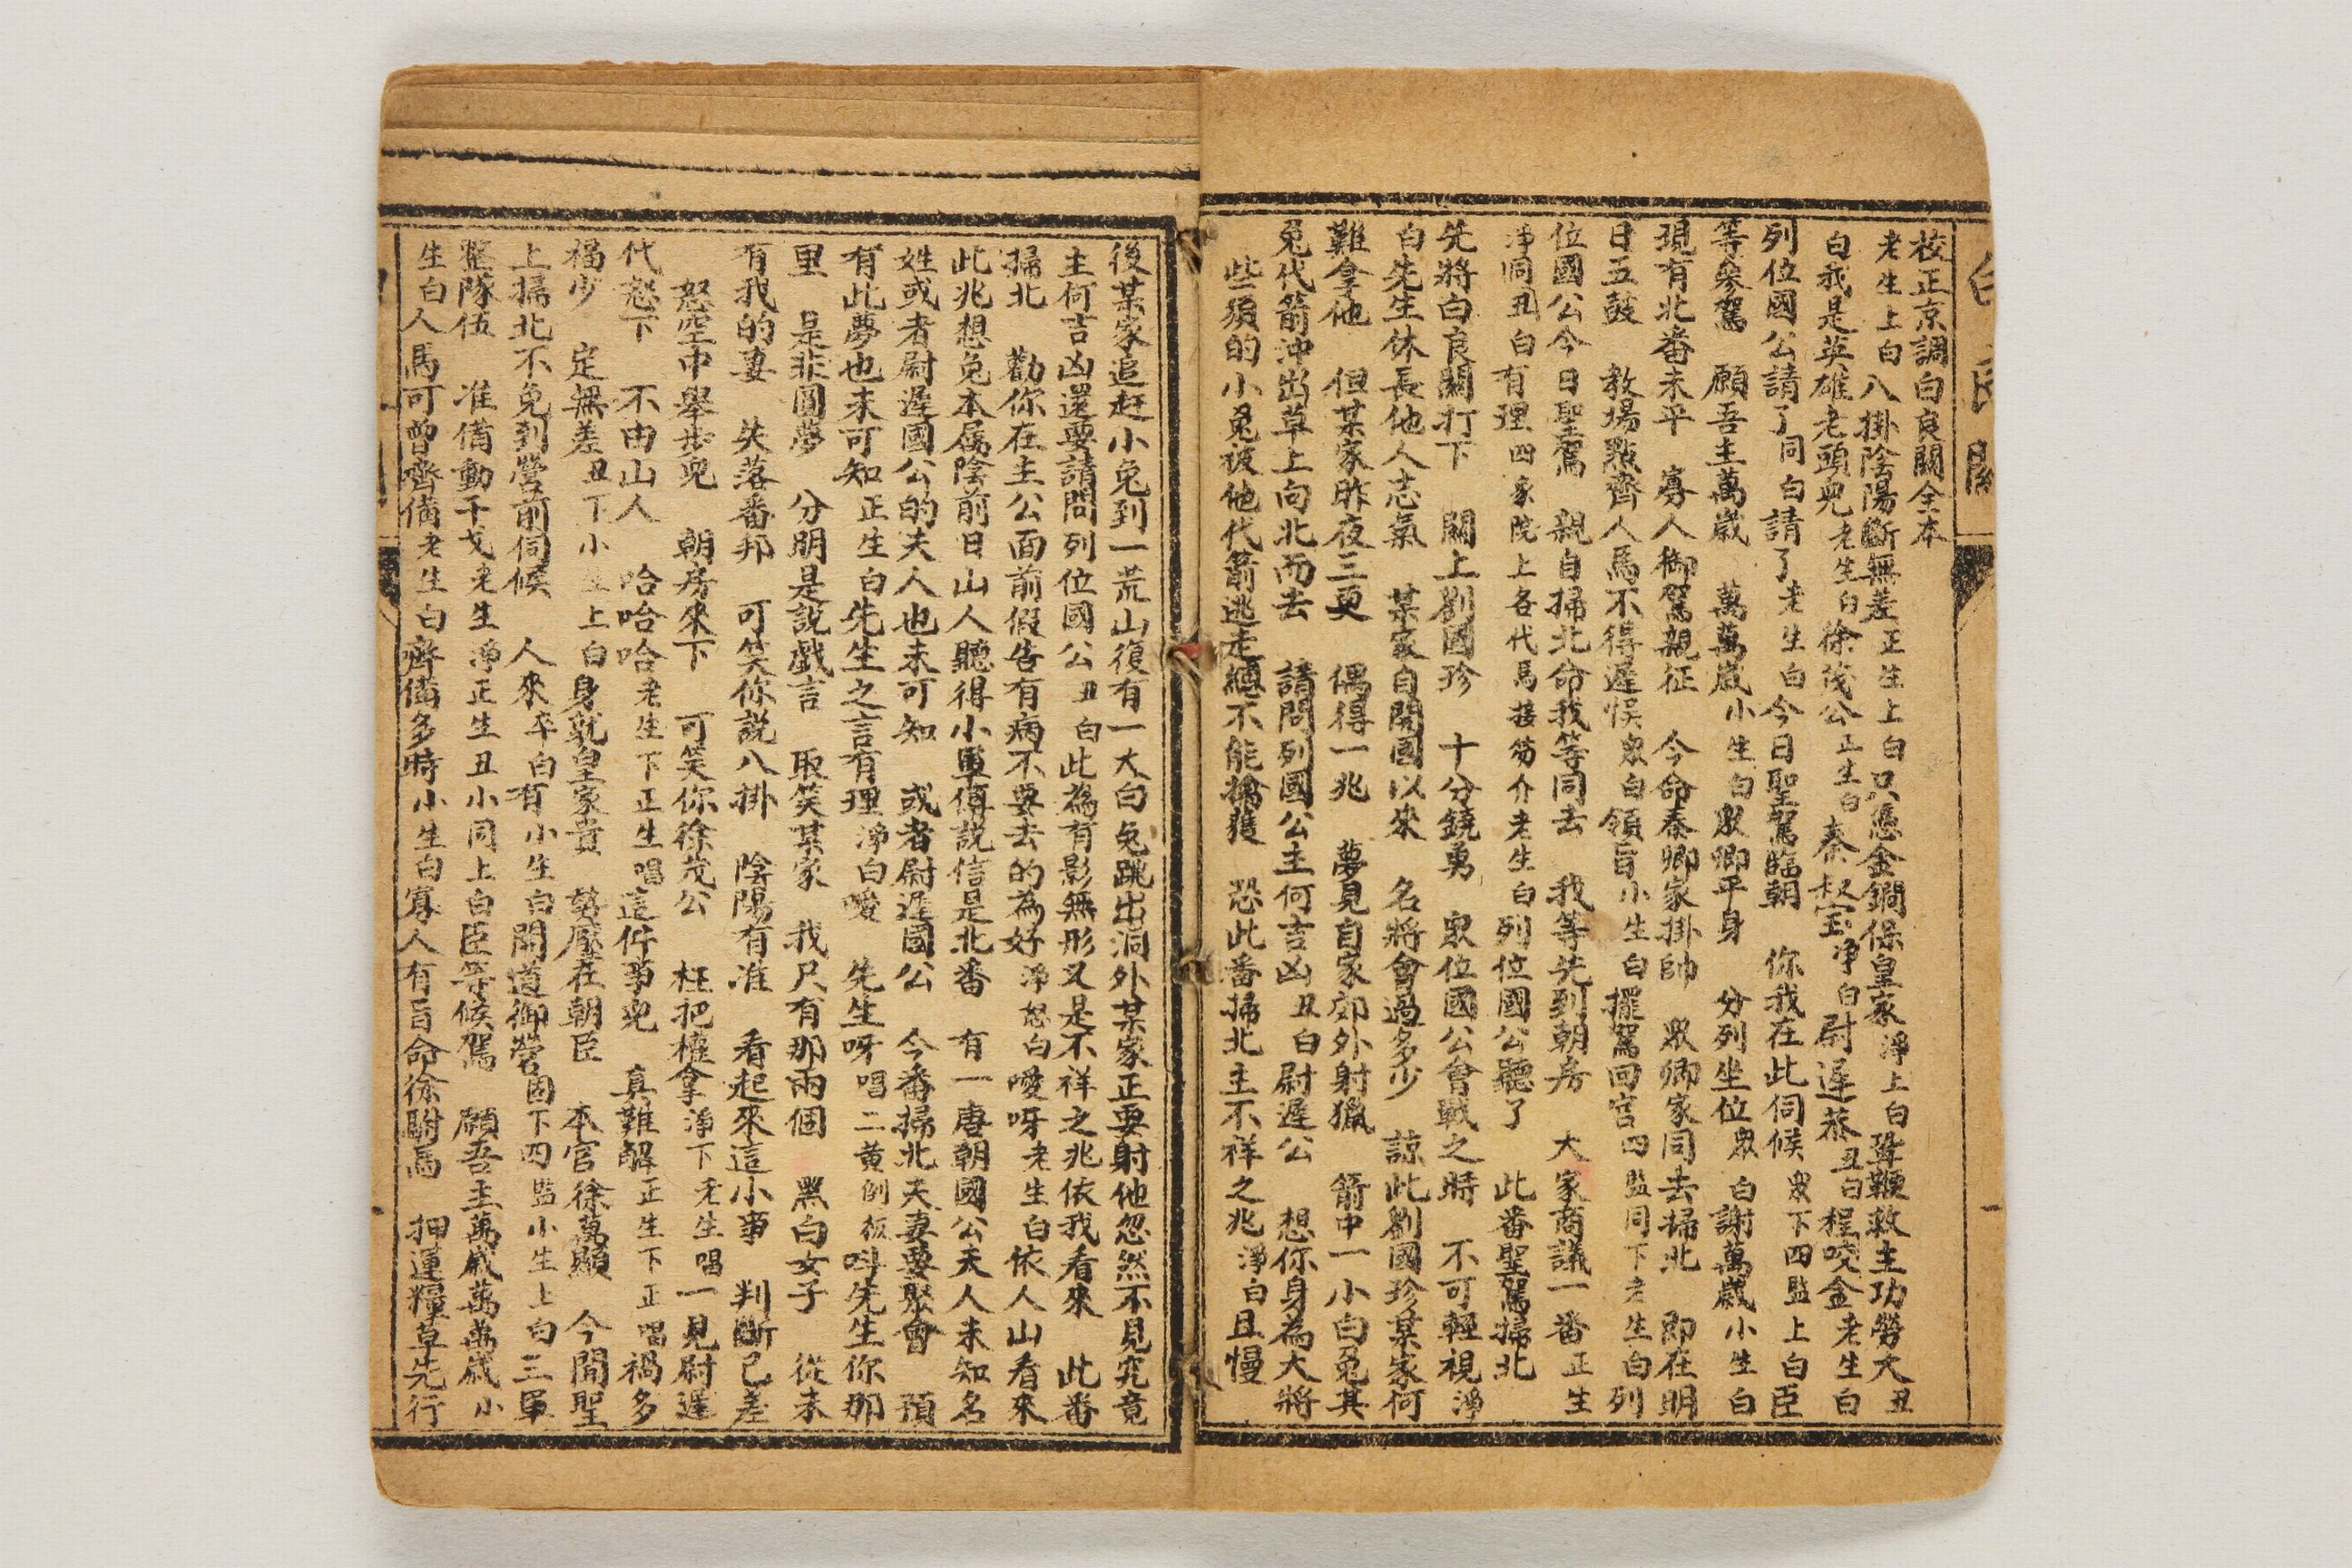 校正京調白良關全本
老生上白八掛陰陽斷無差正生上白只憑金鐧保皇家淨上白聳鞭救主功勞大丑
白我是英雄老頭兒老生白徐茂公正生白秦叔宝淨白尉遲恭丑白程咬金老生白
列位國公請了同白請了老生白今日聖駕臨朝　你我在此伺候眾下四監上白臣
等參駕　願吾主萬歲　萬萬歲小生白眾卿平身　分列坐位眾白謝萬歲小生白
現有北番未平　寡人御駕親征　今命秦卿家掛帥　眾卿家同去掃北　即在明
日五鼓　教場點齊人馬不得遲悞眾白領旨小生白擺駕回宮四監同下老生白列
位國公今日聖駕　親自掃北命我等同去　我等先到朝房　大家商議一番正生
淨同丑白有理四家院上各代馬接笏介老生白列位國公聽了　此番聖駕掃北
先將白良關打下　關上劉國珍　十分鐃勇　眾位國公會戰之時　不可輕視淨
白先生休長他人志氣　某家自開國以來　名將會過多少　諒此劉國珍某家何
難拿他　但某家昨夜三更　偶得一兆　夢見自家郊外射獵　箭中一小白兔其
兔代箭沖出草上向北而去　請問列國公主何吉凶丑白尉遲公　想你身為大將
些須的小兔被他代箭逃走總不能擒獲　恐此番掃北主不祥之兆淨白且慢
後某家追赶小兔到一荒山復有一大白兔跳出洞外某家正要射他忽然不見究竟
主何吉凶還要請問列位國公丑白此為有影無形又是不祥之兆依我看來　此番
掃北　勸你在主公面前假告有病不要去的為好淨怒白噯呀老生白依人山看來
此兆想兔本属陰前日山人聽得小軍傳説信是北番　有一唐朝國公夫人未知名
姓或者尉遲國公的夫人也未可知　或者尉遲國公　今番掃北夫妻要聚會　預
有此夢也未可知正生白先生之言有理淨白噯　先生呀唱二黄倒板呌先生你那
里　是非圓夢　分明是説戲言　取笑某家　我尺有那兩個　黑白女子　從未
有我的妻　失落番邦　可笑你説八掛　陰陽有准　看起來這小事　判斷已差
怒空中舉步兒　朝房來下　可笑你徐茂公　枉把權拿淨下老生唱一見尉遲
代怒下　不由山人　哈哈哈老生下正生唱這件事兒　真難解正生下正唱禍多
福少　定無差丑下小生上白身就皇家貴　勢壓在朝臣　本官徐萬顯　今聞聖
上掃北不免到營前伺候　人來卒白有小生白開道御營囬下四監小生上白三軍
整隊伍　准備動干戈老生淨正生丑小同上白臣等候駕　願吾主萬歲萬萬歲小
生白人馬可曾齊備老生白齊備多時小生白寡人有旨命徐駙馬　押運糧草先行